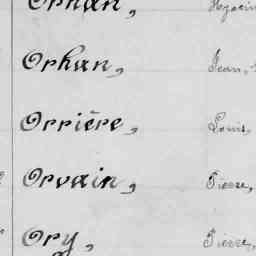 Orhan, Hyacin
Orhan, Jean,
Orrière, Louis,
Orvain, Pierre,
Ory, Pierre,